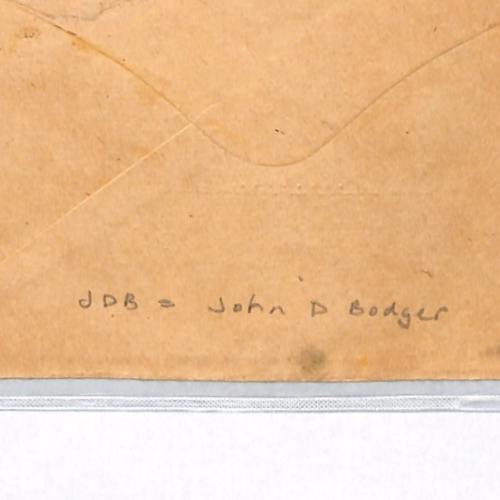 JDB = John D Bodger